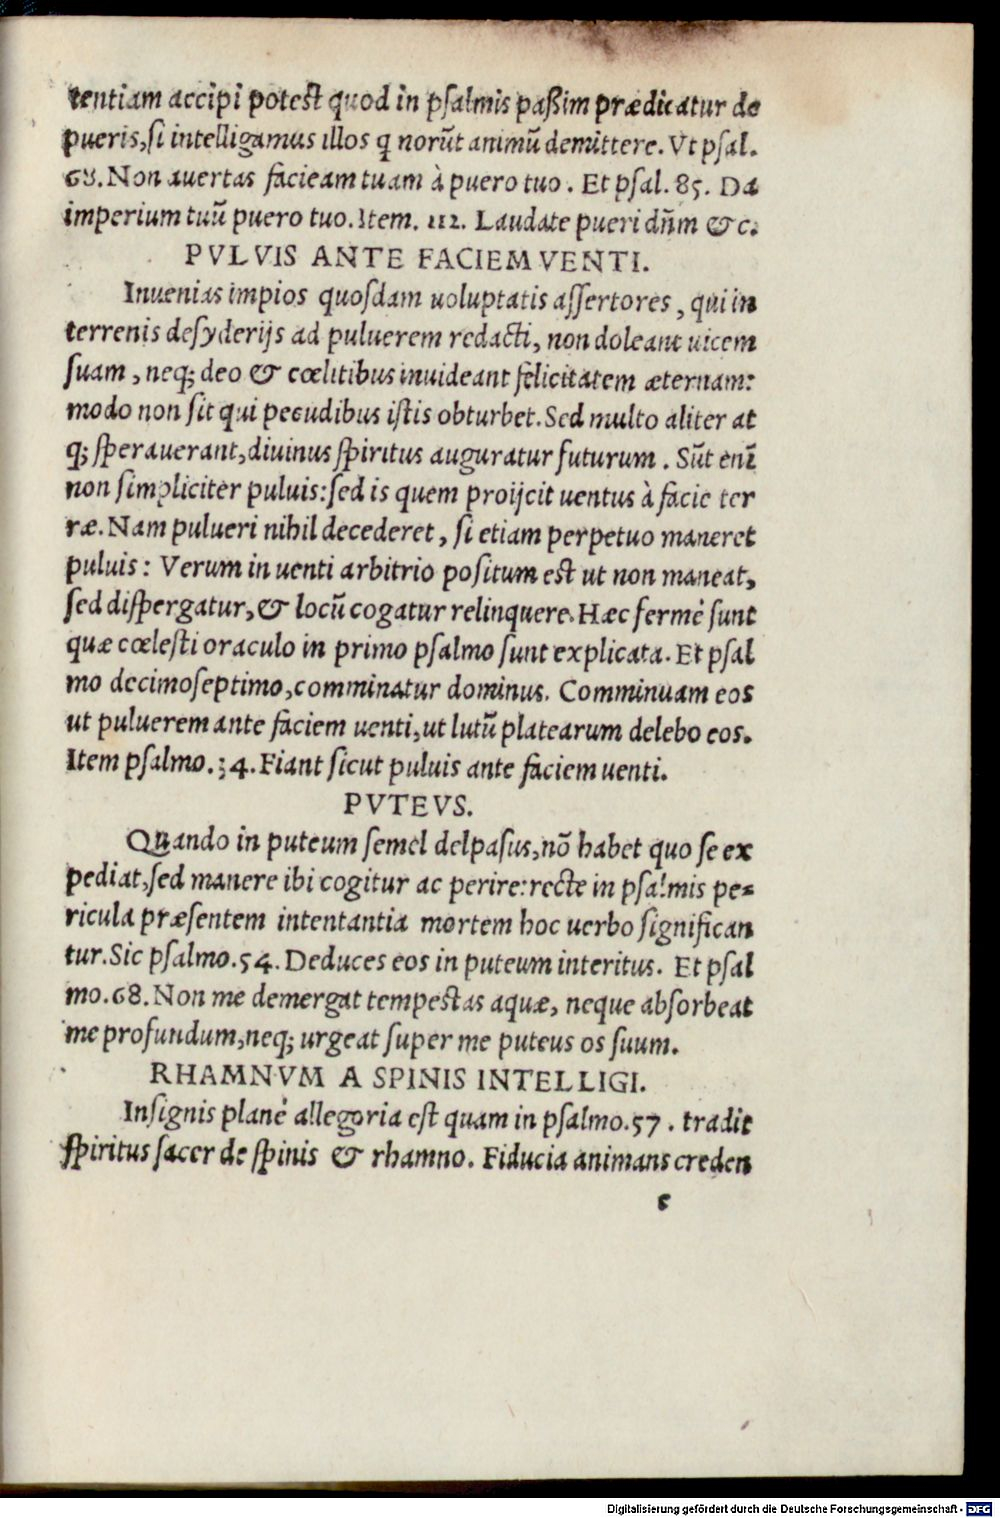 tentiam accipi potest quod in psalmis paßim prædicatur de
pueris,si intelligamus illos q norūt animū demittere. Vt psal.
68. Non auertas facieam tuam à puero tuo. Et psal. 85. Da
imperium tuū puero tuo. Item. 112. Laudate pueri dn̄m & c.
PVLVIS ANTE FACIEM VENTI.
Inuenias impios quosdam uoluptatis assertores, qui in
terrenis desyderijs ad puluerem redacti, non doleant uicem
suam, neq; deo & cœlitibus inuideant felicitatem æternam:
modo non sit qui pecudibus istis obturbet. Sed multo aliter at
q; sperauerant,diuinus spiritus auguratur futurum. Sūt enī
non simpliciter puluis:sed is quem proijcit uentus à facie ter
ræ. Nam pulueri nihil decederet, si etiam perpetuo maneret
puluis: Verum in uenti arbitrio positum est ut non maneat,
sed dispergatur,& locū cogatur relinquere. Hæc fermè sunt
quæ cœlesti oraculo in primo psalmo sunt explicata. Et psal
mo decimoseptimo,comminatur dominus. Comminuam eos
ut puluerem ante faciem uenti,ut lutū platearum delebo eos.
Item psalmo. 34. Fiant sicut puluis ante faciem uenti.
PVTEVS.
Quando in puteum semel delpasus,nō habet quo se ex
pediat,sed manere ibi cogitur ac perire:recte in psalmis pe=
ricula præsentem intentantia mortem hoc uerbo significan
tur. Sic psalmo. 54. Deduces eos in puteum interitus. Et psal
mo. 68. Non me demergat tempestas aquæ, neque absorbeat
me profundum,neq; urgeat super me puteus os suum.
RHAMNVM A SPINIS INTELLIGI.
Insignis planè allegoria est quam in psalmo. 57. tradit
spiritus sacer de spinis & rhamno. Fiducia animans creden
e
Digitalisierung gefördert durch die Deutsche Forschungsgemeinschaft - DFG